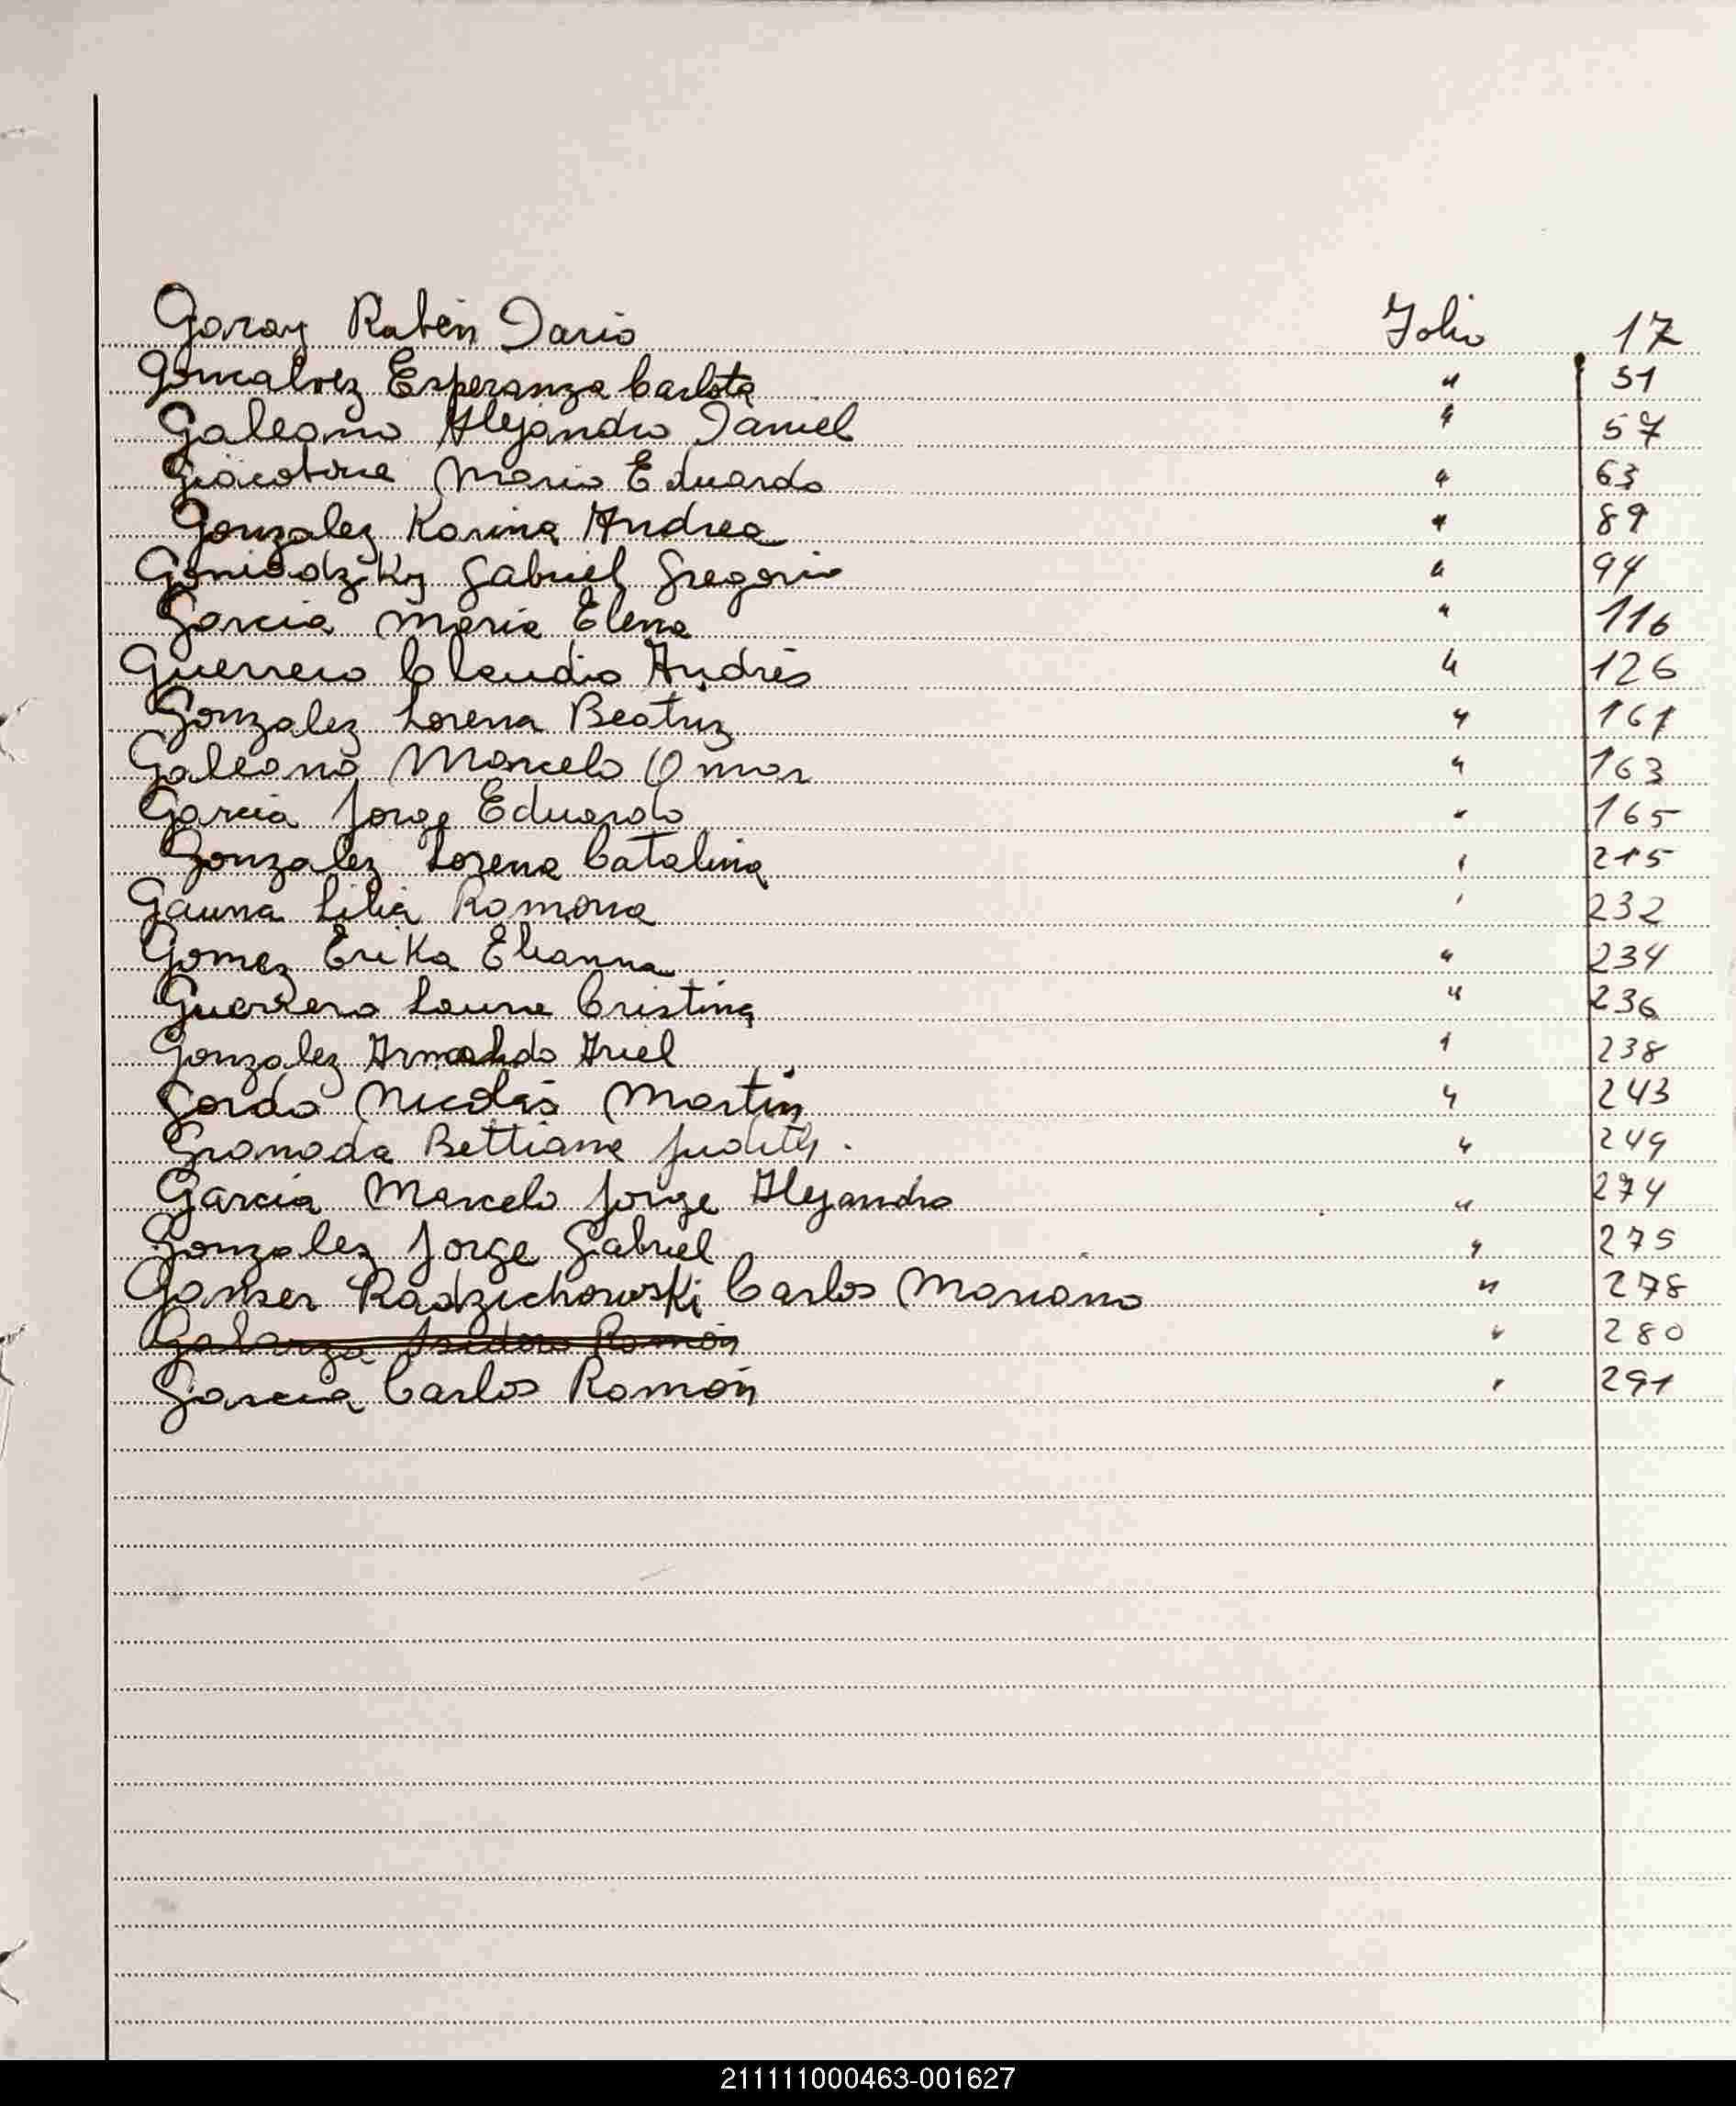 Garay Rubén Dario Folio 17
Goncalvez Esperanza Carlota " 51
Galeano Alejandro Daniel " 57
Giacobine Mario Eduardo " 63
Gonzalez Karina Andrea " 89
Goniodzky Gabriel Gregorio " 94
Garcia Maria Elena " 116
Guerrero Claudio Andrés " 126
Gonzalez Lorena Beatriz " 161
Galeano Marcelo Omar " 163
Garcia Jorge Eduardo " 165
Gonzalez Lorena Catalina " 215
Gauna Lilia Ramona " 232
Gomez Erika Elianna " 234
Guerrero Laura Cristina " 236
Gonzalez Armando Ariel " 238
Gordo Nicolás Martin " 243
Granada Bettiana Judith. " 249
Garcia Marcelo Jorge Alejandro " 274
Gonzalez Jorge Gabriel " 275
Ganser Radzichowski Carlos Mariano " 278
Galarza Isidoro Ramón " 280
Garcia Carlos Ramón " 291
211111000463-001627